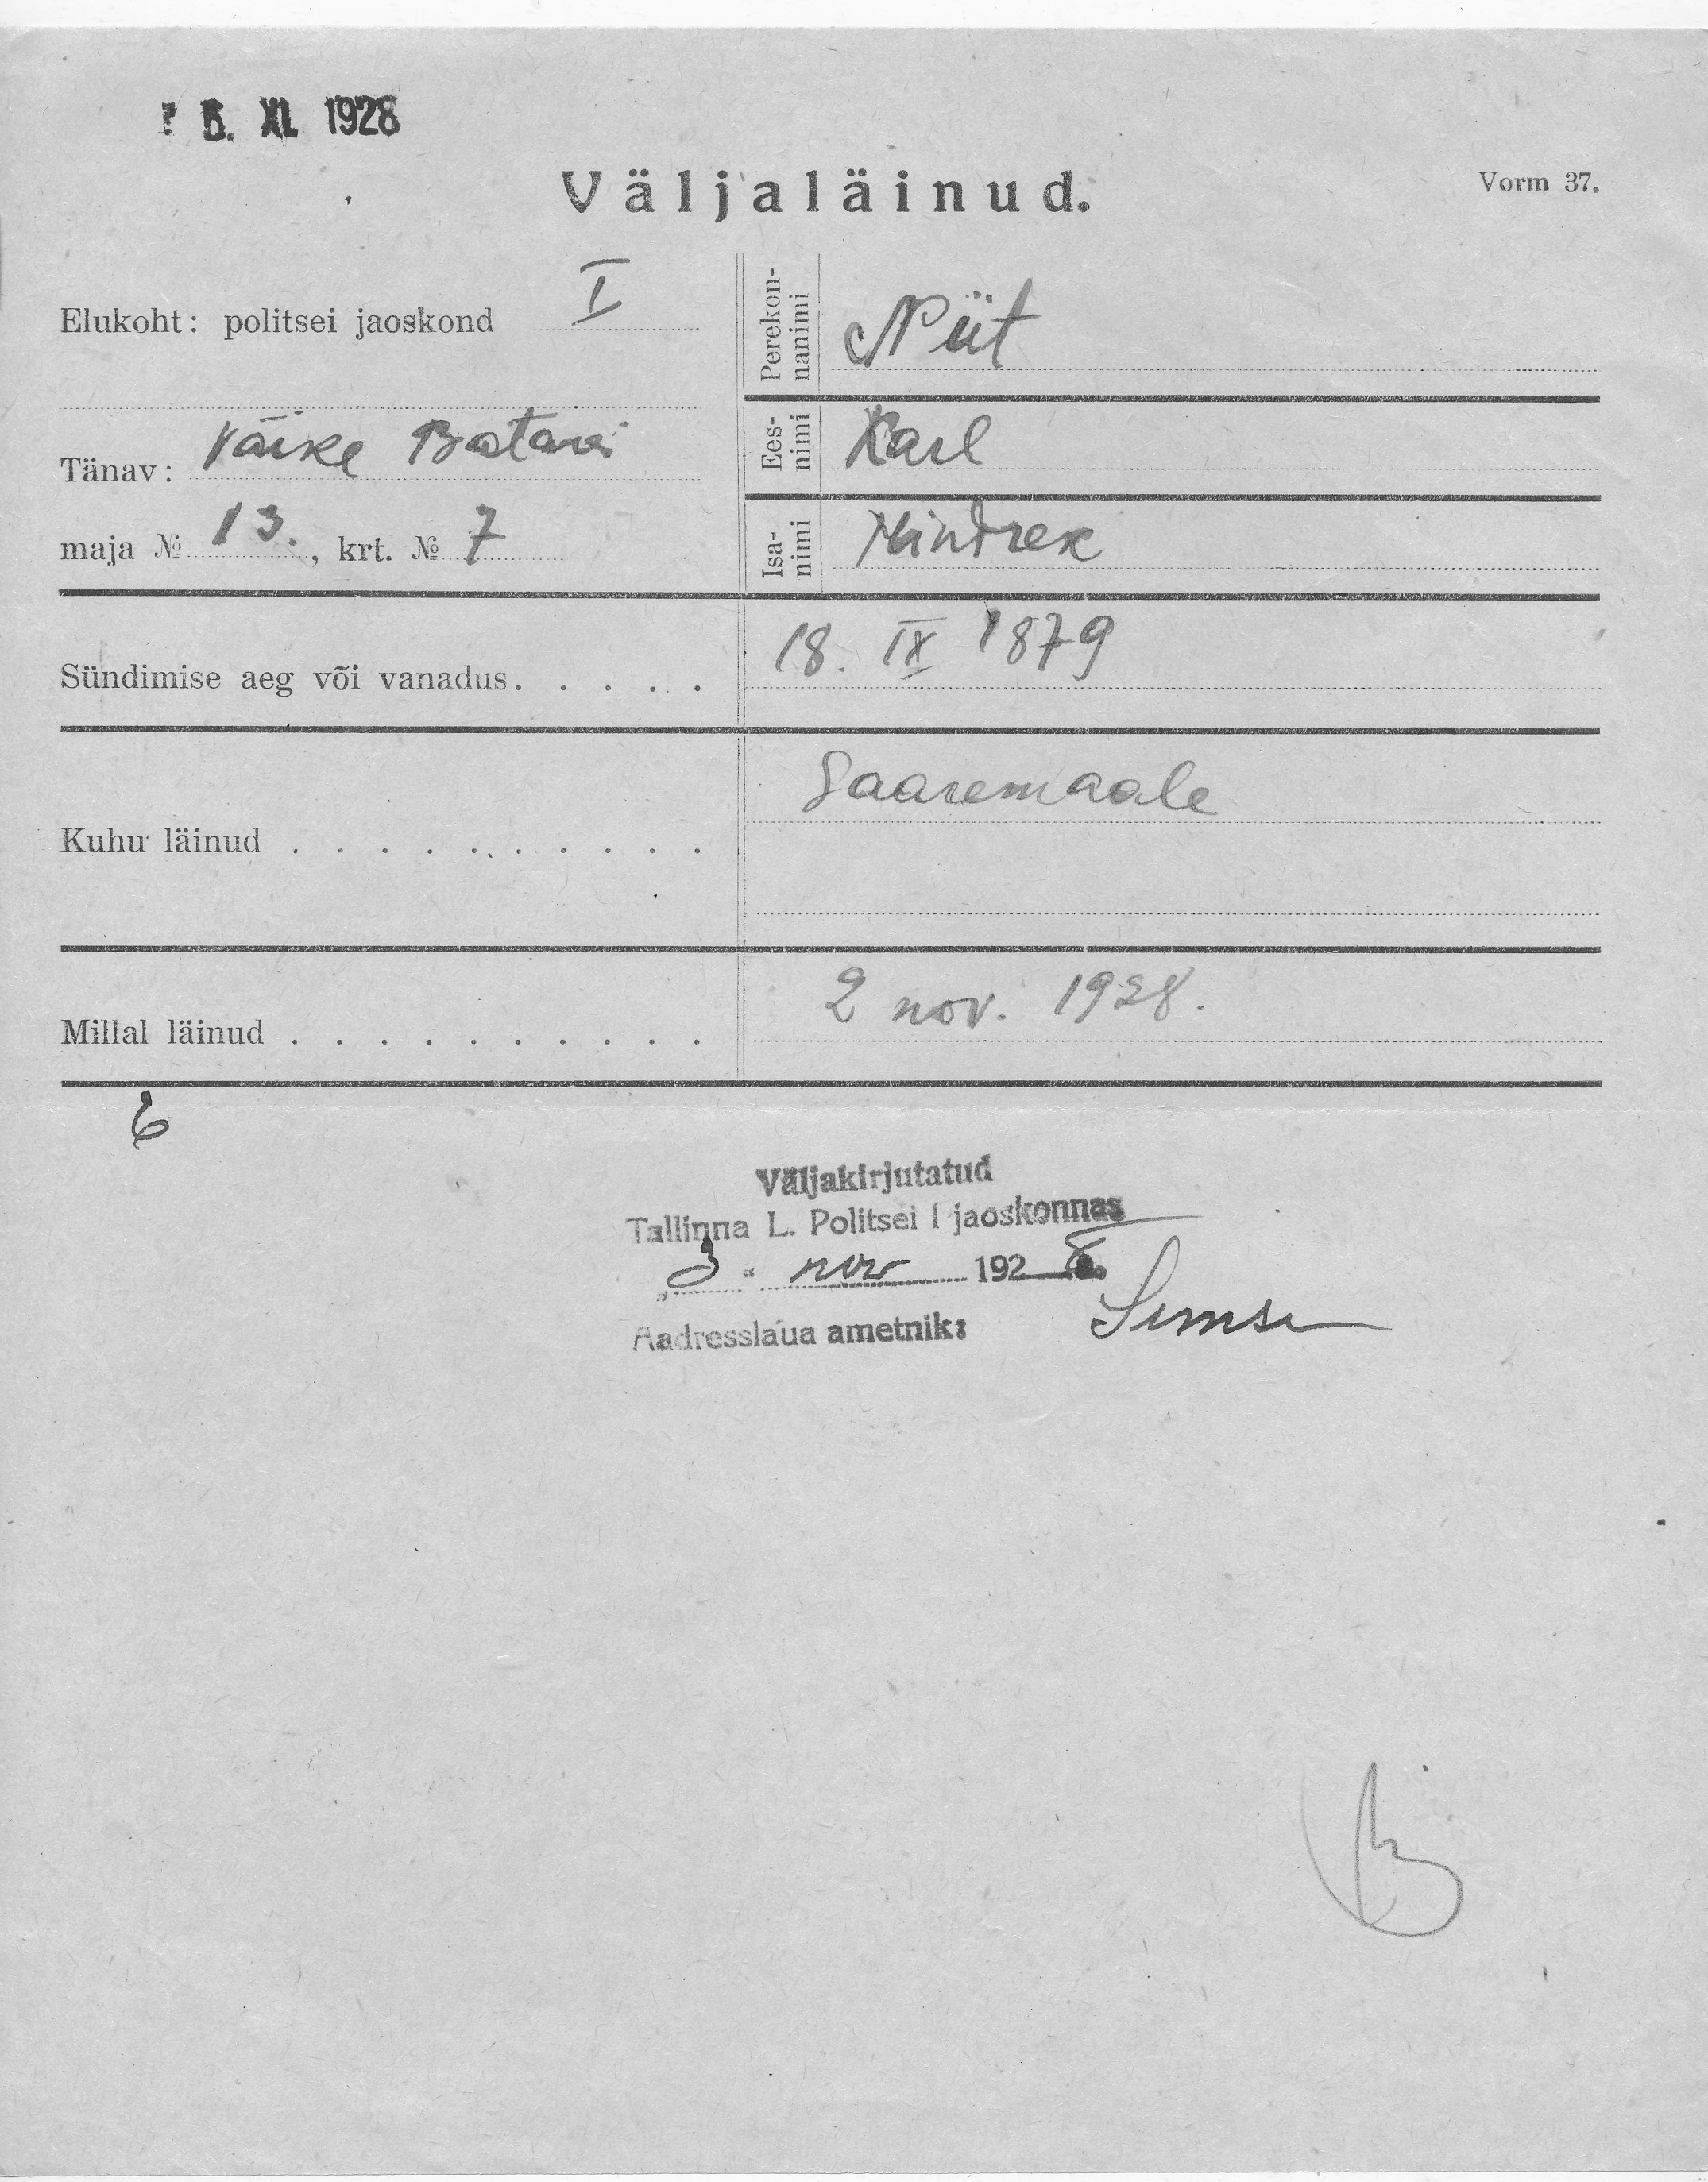 5. XI. 1928
Väljaläinud.
Vorm 37.
Elukoht: politsei jaoskond I
Tänav: Väike Batarei
maja № 13., krt. № 7
Perekon-
nanimi
Niit
Ees-
nimi
Karl
Isa-
nimi
Hindrek
Sündimise aeg või vanadus. . . . . .
18. IX 1879
Kuhu läinud . . . . . . . . . .
Saaremaale
Millal läinud . . . . . . . . . .
2 nov. 1928.
6
Väljakirjutatud
Tallinna L. Politsei I jaoskonnas
„3“ nov 1928 a.
Aadresslaua ametnik: